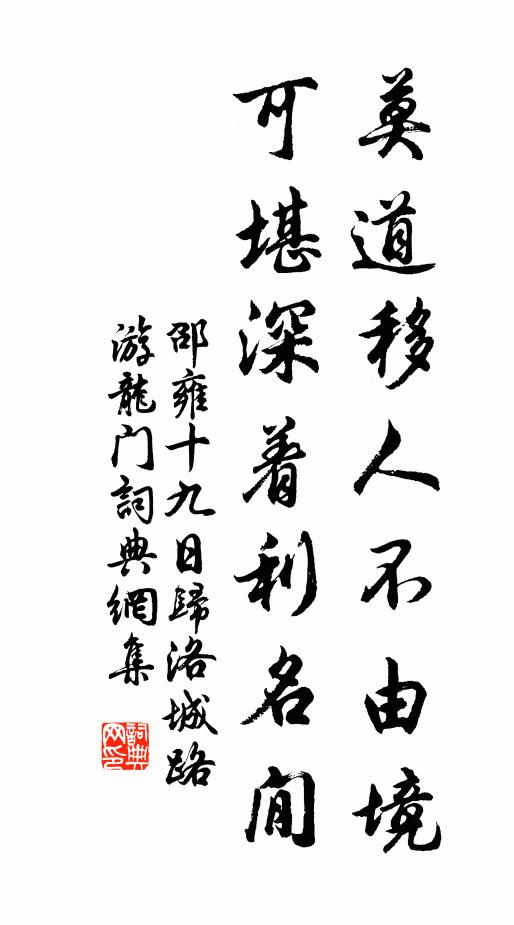 莫道移人不由境
可堪深着利名間
邵雍十九日歸洛城路
游龍门詞典網集
詞典网印